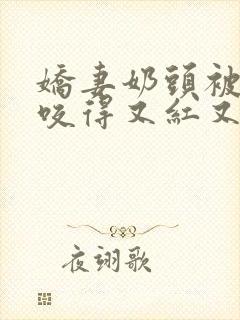 嬌妻奶頭被
咬得又紅又
夜翊歌